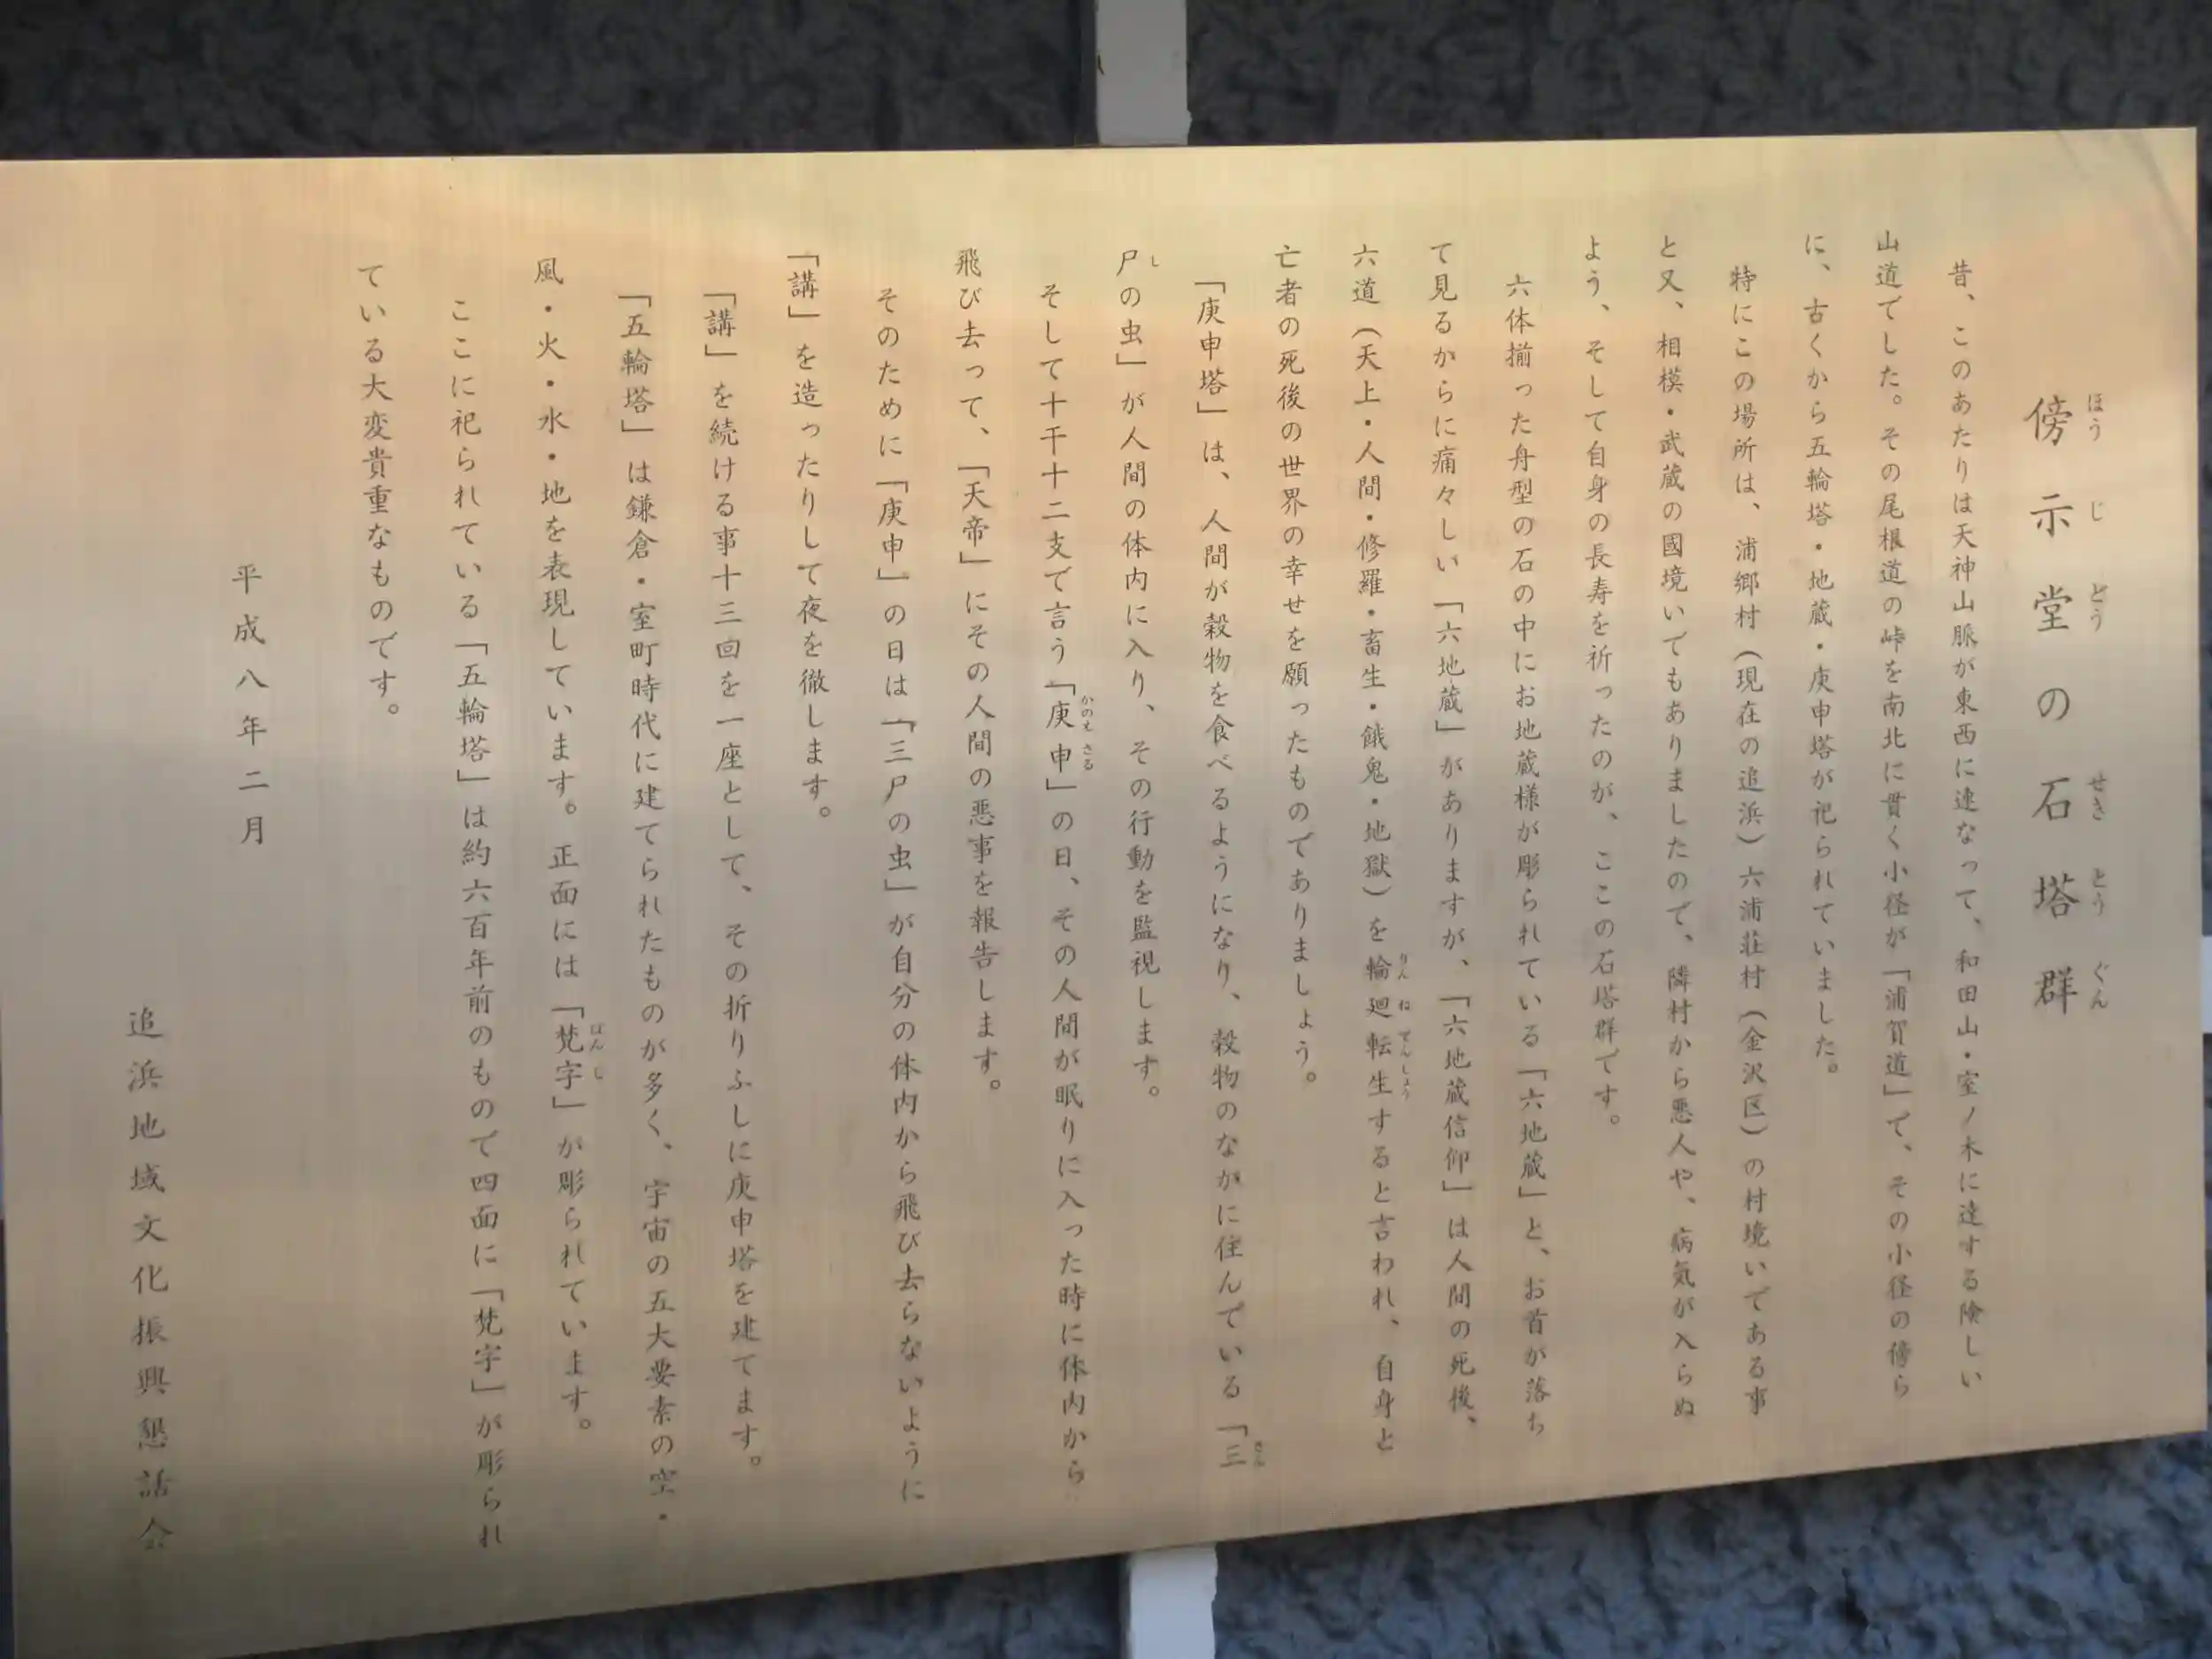 傍示堂の石塔群
昔、このあたりは天神山脈が東西に連なって、和田山・室ノ木に達する険しい
山道でした。その尾根道の峠を南北に貫く小径が「浦賀道」で、その小径の傍ら
に、古くから五輪塔・地蔵・庚申塔が祀られていました。
特にこの場所は、浦郷村（現在の追浜）六浦荘村（金沢区）の村境いである事
と又、相模・武蔵の國境いでもありましたので、隣村から悪人や、病気が入らぬ
よう、そして自身の長寿を祈ったのが、ここの石塔群です。
六体揃った舟型の石の中にお地蔵様が彫られている「六地蔵」と、お首が落ち
て見るからに痛々しい「六地蔵」がありますが、「六地蔵信仰」は人間の死後、
六道（天上・人間・修羅・畜生・餓鬼・地獄）を輪廻転生すると言われ、自身と
亡者の死後の世界の幸せを願ったものでありましょう。
「庚申塔」は、人間が穀物を食べるようになり、穀物のなかに住んでいる「三
尸の虫」が人間の体内に入り、その行動を監視します。
そして十干十二支で言う「庚申」の日、その人間が眠りに入った時に体内から
飛び去って、「天帝」にその人間の悪事を報告します。
そのために「庚申」の日は「三尸の虫」が自分の体内から飛び去らないように
「講」を造ったりして夜を徹します。
「講」を続ける事十三回を一座として、その折りふしに庚申塔を建てます。
「五輪塔」は鎌倉・室町時代に建てられたものが多く、宇宙の五大要素の空・
風・火・水・地を表現しています。正面には「梵字」が彫られています。
ここに祀られている「五輪塔」は約六百年前のもので四面に「梵字」が彫られ
ている大変貴重なものです。
平成八年二月
追浜地域文化振興懇話会